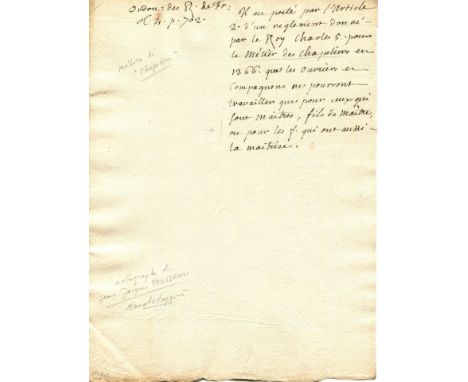 ordon. des R. de Fr.
t. 4. p. 702.
Il est porté par l'Article
2. d'un reglement donné
par le Roy Charles 5. pour
le Métier des Chapeliers en
1366. que les Ouvriers et
Compagnons ne pourront
travailler que pour ceux qui
sont maitres, fils de Maitre,
ou pour les f. qui ont aussi
la maitrise.
métier de
"Chapelier"
autographe de
Jean Jacques ROUSSEAU